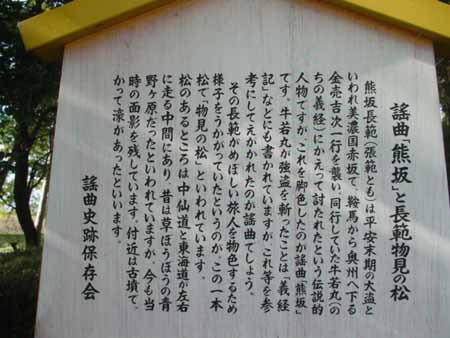 謡曲「熊坂」と長範物見の松
熊坂長範（張範とも）は平安末期の大盗と
いわれ美濃国赤坂で、鞍馬から奥州へ下る
金売吉次一行を襲い、同行していた牛若丸（の
ちの義経）にかえって討たれたという伝説的
人物ですが、これを脚色したのが謡曲「熊坂」
です。牛若丸が強盗を斬ったことは「義経
記」などにも書かれていますが、これ等を参
考にしてえがかれたのが謡曲でしょう。
その長範がめぼしい旅人を物色するため
様子をうかがっていたというのが、この一本
松で「物見の松」といわれています。
松のあるところは中仙道と東海道が左右
に走る中間にあり、昔は草ぼうぼうの青
野ヶ原だったといわれていますが、今も当
時の面影を残しています。付近は古墳で、
かつて濠があったといいます。
謡曲史跡保存会